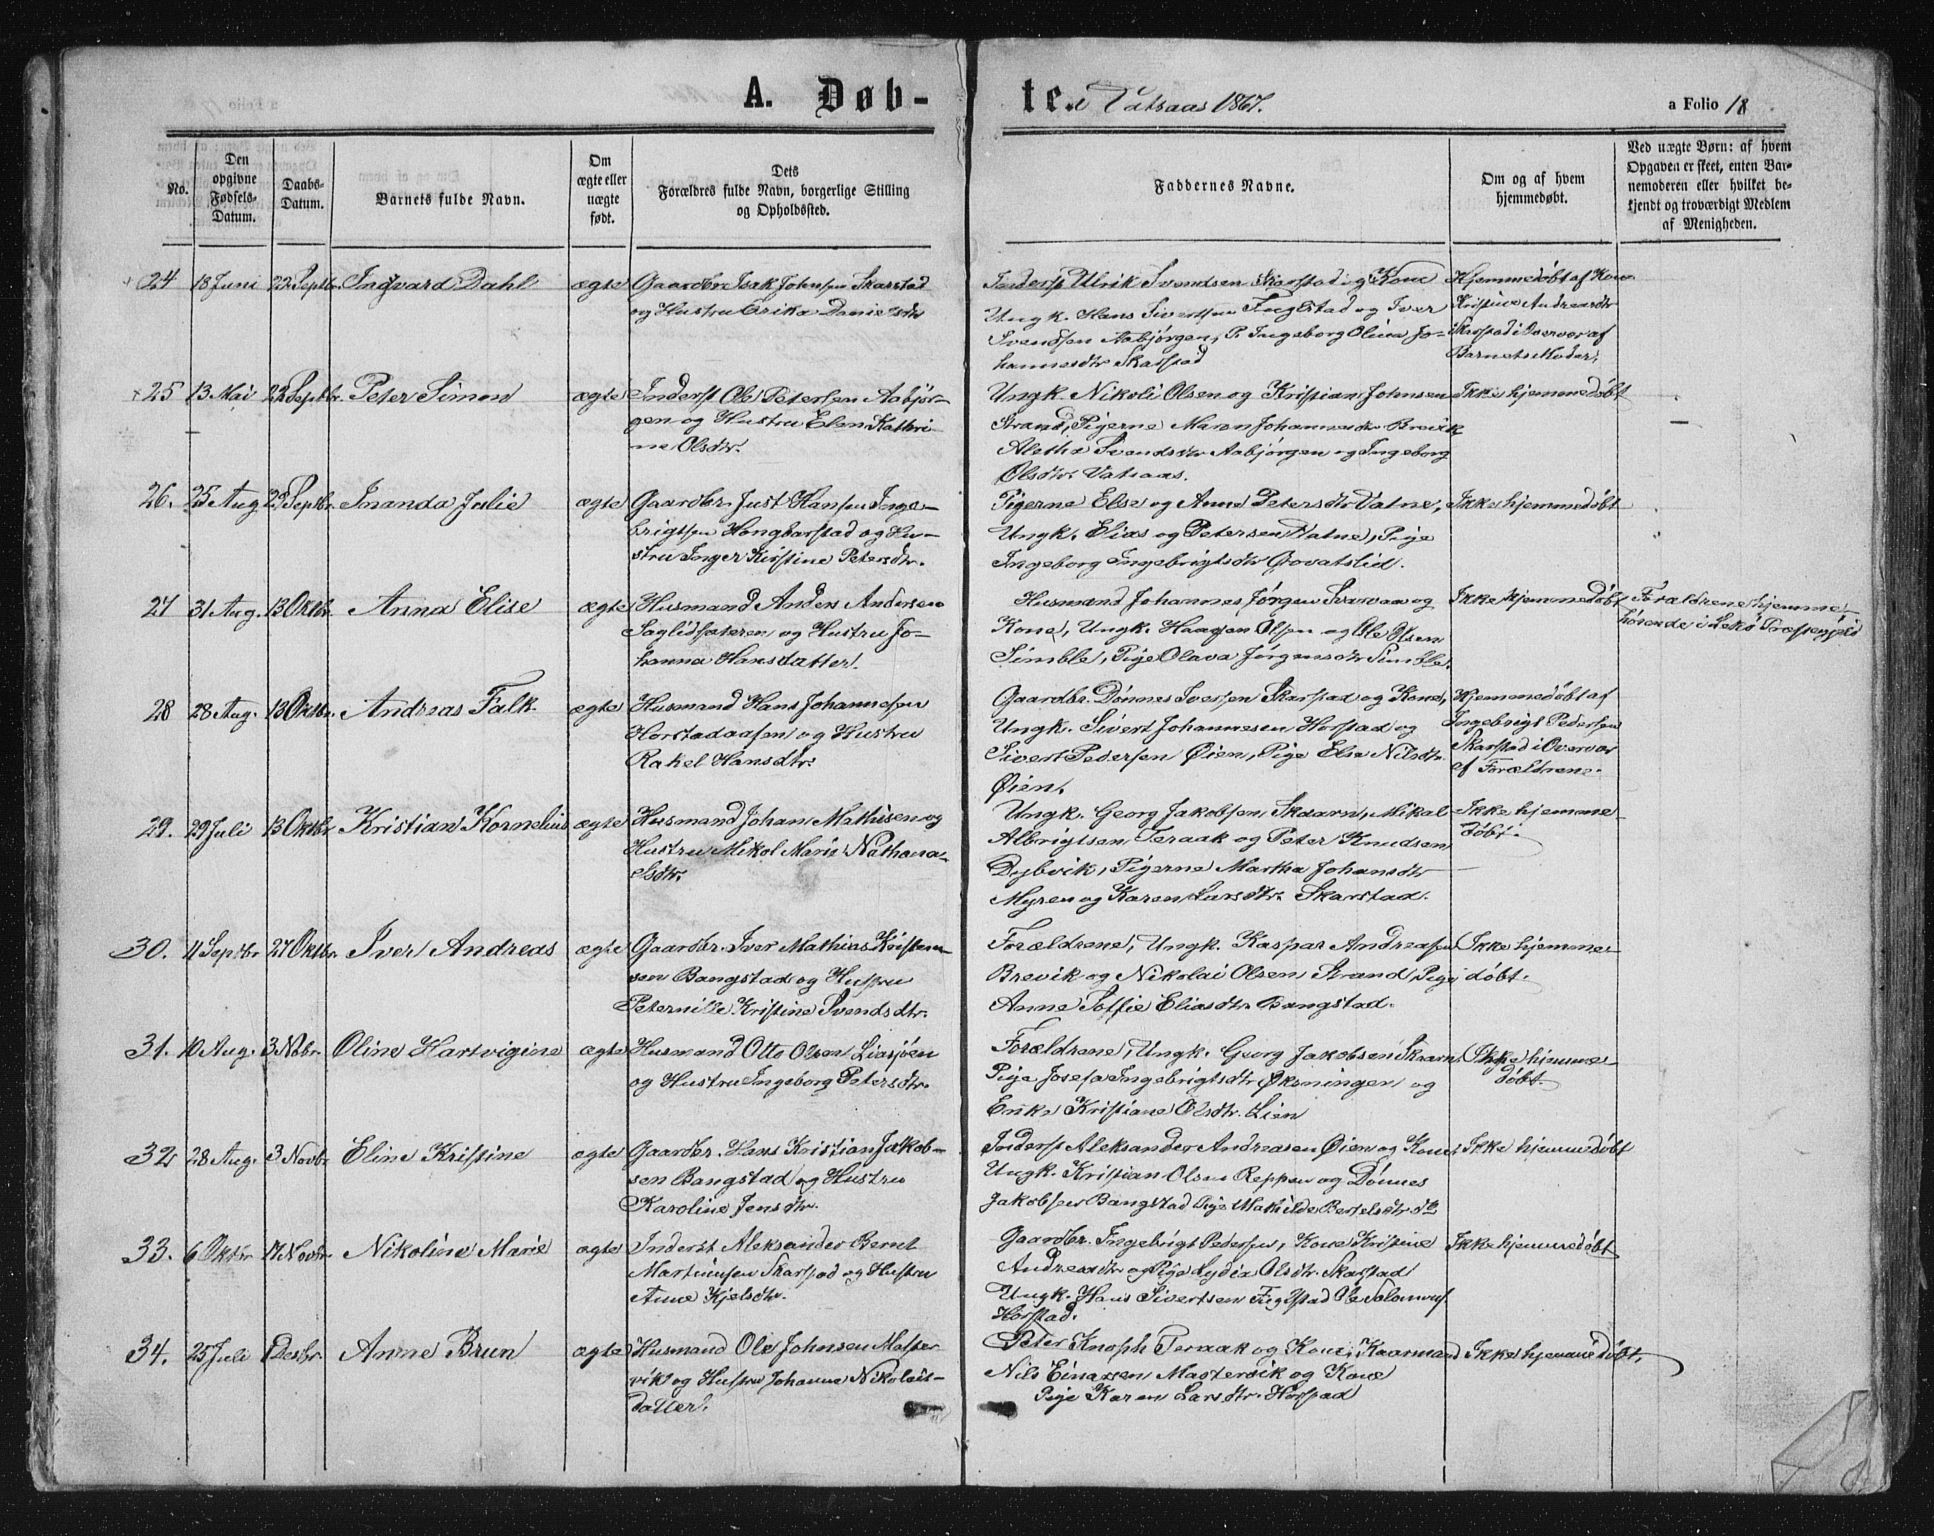 A. Døb-
te i Vatsaas 1867.
a Folio 18
No.
Den
opgivne
Fødsels-
Datum.
Daabs-
Datum.
Barnets fulde Navn.
Om
ægte eller
uægte
født.
Dets
Forældres fulde Navn, borgerlige Stilling
og Opholdssted.
Faddernes Navne.
Om og af hvem
hjemmedøbt.
Ved uægte Børn: af hvem
Opgaven er skeet, enten Bar-
nemoderen eller hvilket be-
kjendt og troværdigt Medlem
af Menigheden.
24 18 Juni 22 Septbr. Ingvard Dahl ægte
Gaardbr. Isak Johnsen Skarstad
og Hustru Erika Danielsdtr
Inderst Ulrik Svendsen Skarstad og Kone
Ungk. Hans Sivertsen Fuglstad og Iver
Svendsen Aabjørgen, P. Ingeborg Olina Jo-
hannesdtr Skarstad
Hjemmedøbt af Kone
Kristine Andreasdtr
Skarstad i Overvær af
Barnets Moder.
25 13 Mai 22 Septbr. Peter Simon ægte
Inderst Ole Petersen Aabjør-
gen og Hustru Elen Kathri-
ne Olsdtr.
Ungk. Nikoli Olsen og Kristian Johnsen
Strand, Pigerne Maren Johannesdtr Brevik
Aletha Svendsdtr Aabjørgen og Ingeborg
Olsdtr. Vatsaas.
Ikke hjemmedøbt
26. 25 Aug 29 Septbr. Inanda Julie ægte
Gaardbr. Just Hansen Inge-
brigtsen Hongbarstad og Hu-
stru Inger Kirstine Petersdtr.
Pigerne Else og Anne Petersdtr Vatne,
Ungk. Elias og Petersen Vatne, Pige
Ingeborg Ingebrigtsdtr Govatslid.
Ikke hjemmedøbt
27 31 Aug. 13 Oktbr. Anna Elise ægte
Husmand Anders Andersen
Saglidsæteren og Hustru Jo-
hanna Hansdatter.
Husmand Johannes Jørgen Svarvaa og
Kone, Ungk. Haagen Olsen og Ole Olsen
Simble, Pige Olava Jørgensdtr Simble.
Ikke hjemmedøbt
Forældrene hjemme-
hørende i Lekø Præstegjeld
28 28 Aug. 13 Oktbr. Andreas Falk. ægte
Husmand Hans Johannesen
Horstadaasen og Hustru
Rakel Hansdtr.
Gaardbr. Dønnes Iversen Skarstad og Kone,
Ungk. Sivert Johannesen Horstad og
Sivert Pedersen Øien, Pige Else Nilsdtr.
Øien.
Hjemmedøbt af
Ingebrigt Pedersen
Skarstad i Overvær
af Forældrene.
29. 29 Juli 13 Oktbr. Kristian Kornelius ægte
Husmand Johan Mathisen og
Hustru Mikol Marie Nathana-
elsdtr.
Ungk. Georg Jakobsen Skaarn, Mikal
Albrigtsen Teraak og Peter Knudsen
Dybvik, Pigerne Martha Johansdtr
Myren og Karen Larsdtr. Skarstad.
Ikke hjemme-
døbt.
30. 11 Septbr 27 Oktbr. Iver Andreas ægte
Gaardbr. Iver Mathias Kristen-
sen Bangstad og Hustru
Peternille Kristine Svendsdtr.
Forældrene, Ungk. Kaspar Andreasen
Brevik og Nikolai Olsen Strand, Pige
Anne Soffie Eliasdtr Bangstad.
Ikke hjemme-
døbt.
31. 10 Aug. 3 Nobr. Oline Hartvigine ægte
Husmand Otto Olsen Liasjøen
og Hustru Ingeborg Petersdtr.
Forældrene, Ungk. Georg Jakobsen Skaarn
Pige Josefa Ingebrigtsdtr Økoningen og
Erike Kristiane Olsdtr. Lien
Ikke hjemme-
døbt.
32 28 Aug. 3 Novbr Eline Kristine ægte
Gaardbr. Hans Kristian Jakob-
sen Bangstad og Hustru
Karoline Jensdtr.
Inderst Aleksander Andreasen Øien og Kone
Ungk. Kristian Olsen Reppen og Dønnes
Jakobsen Bangstad Pige Mathilde Bertelsdtr do
Ikke hjemmedøbt
33. 6 Oktbr 17 Novbr Nikoline Marie ægte
Inderst Aleksander Bernt
Martinusen Skarstad og Hustru
Anne Kjelsdtr.
Gaardbr. Ingebrigt Pedersen, Kone Kristine
Andreasdtr og Pige Lydia Olsdtr. Skarstad
Ungk. Hans Sivertsen Fuglstad Ole Salomons.
Horstad.
Ikke hjemmedøbt
34. 25 Juli 1 Desbr. Anne Brun ægte
Husmand Ole Johnsen Mastær-
vik og Hustru Johanna Nikolais-
datter.
Peter Knoph Teraak og Kone, Kaarmand
Nils Einarsen Mastervik og Kone
Pige Karen Larsdtr. Horstad
Ikke hjemmedøbt.